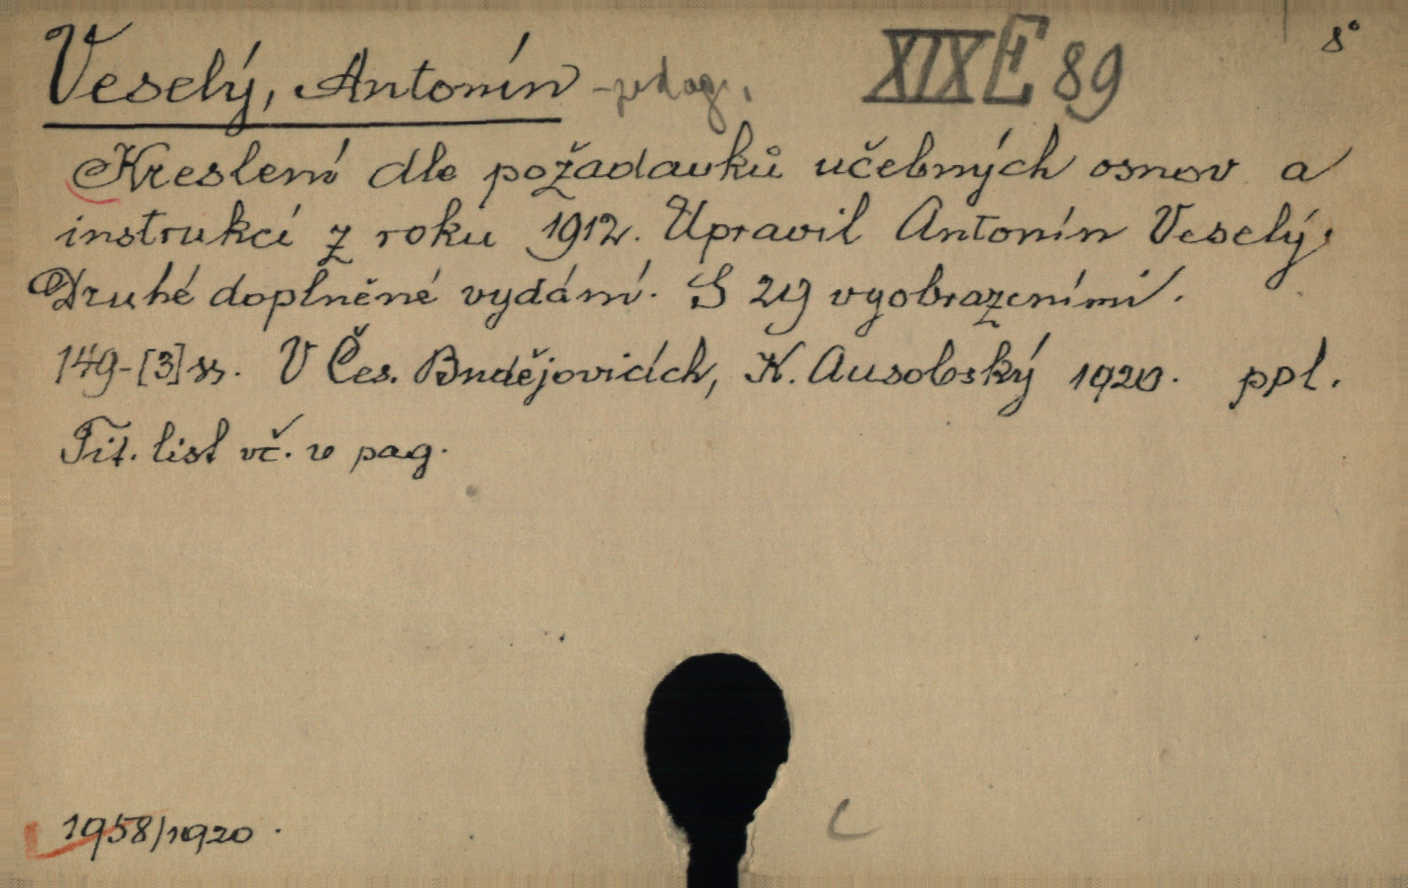 Veselý, Antonín - pedag. XIX E 89 8°
Kreslení dle požadavků učebných osnov a
instrukcí z roku 1912. Upravil Antonín Veselý.
Druhé doplněné vydání. S 219 vyobrazeními.
149-[3] ss. V Čes. Budějovicích, K. Ausobský 1920. ppl.
Tit. list vč. v pag.
1958/1920.
C